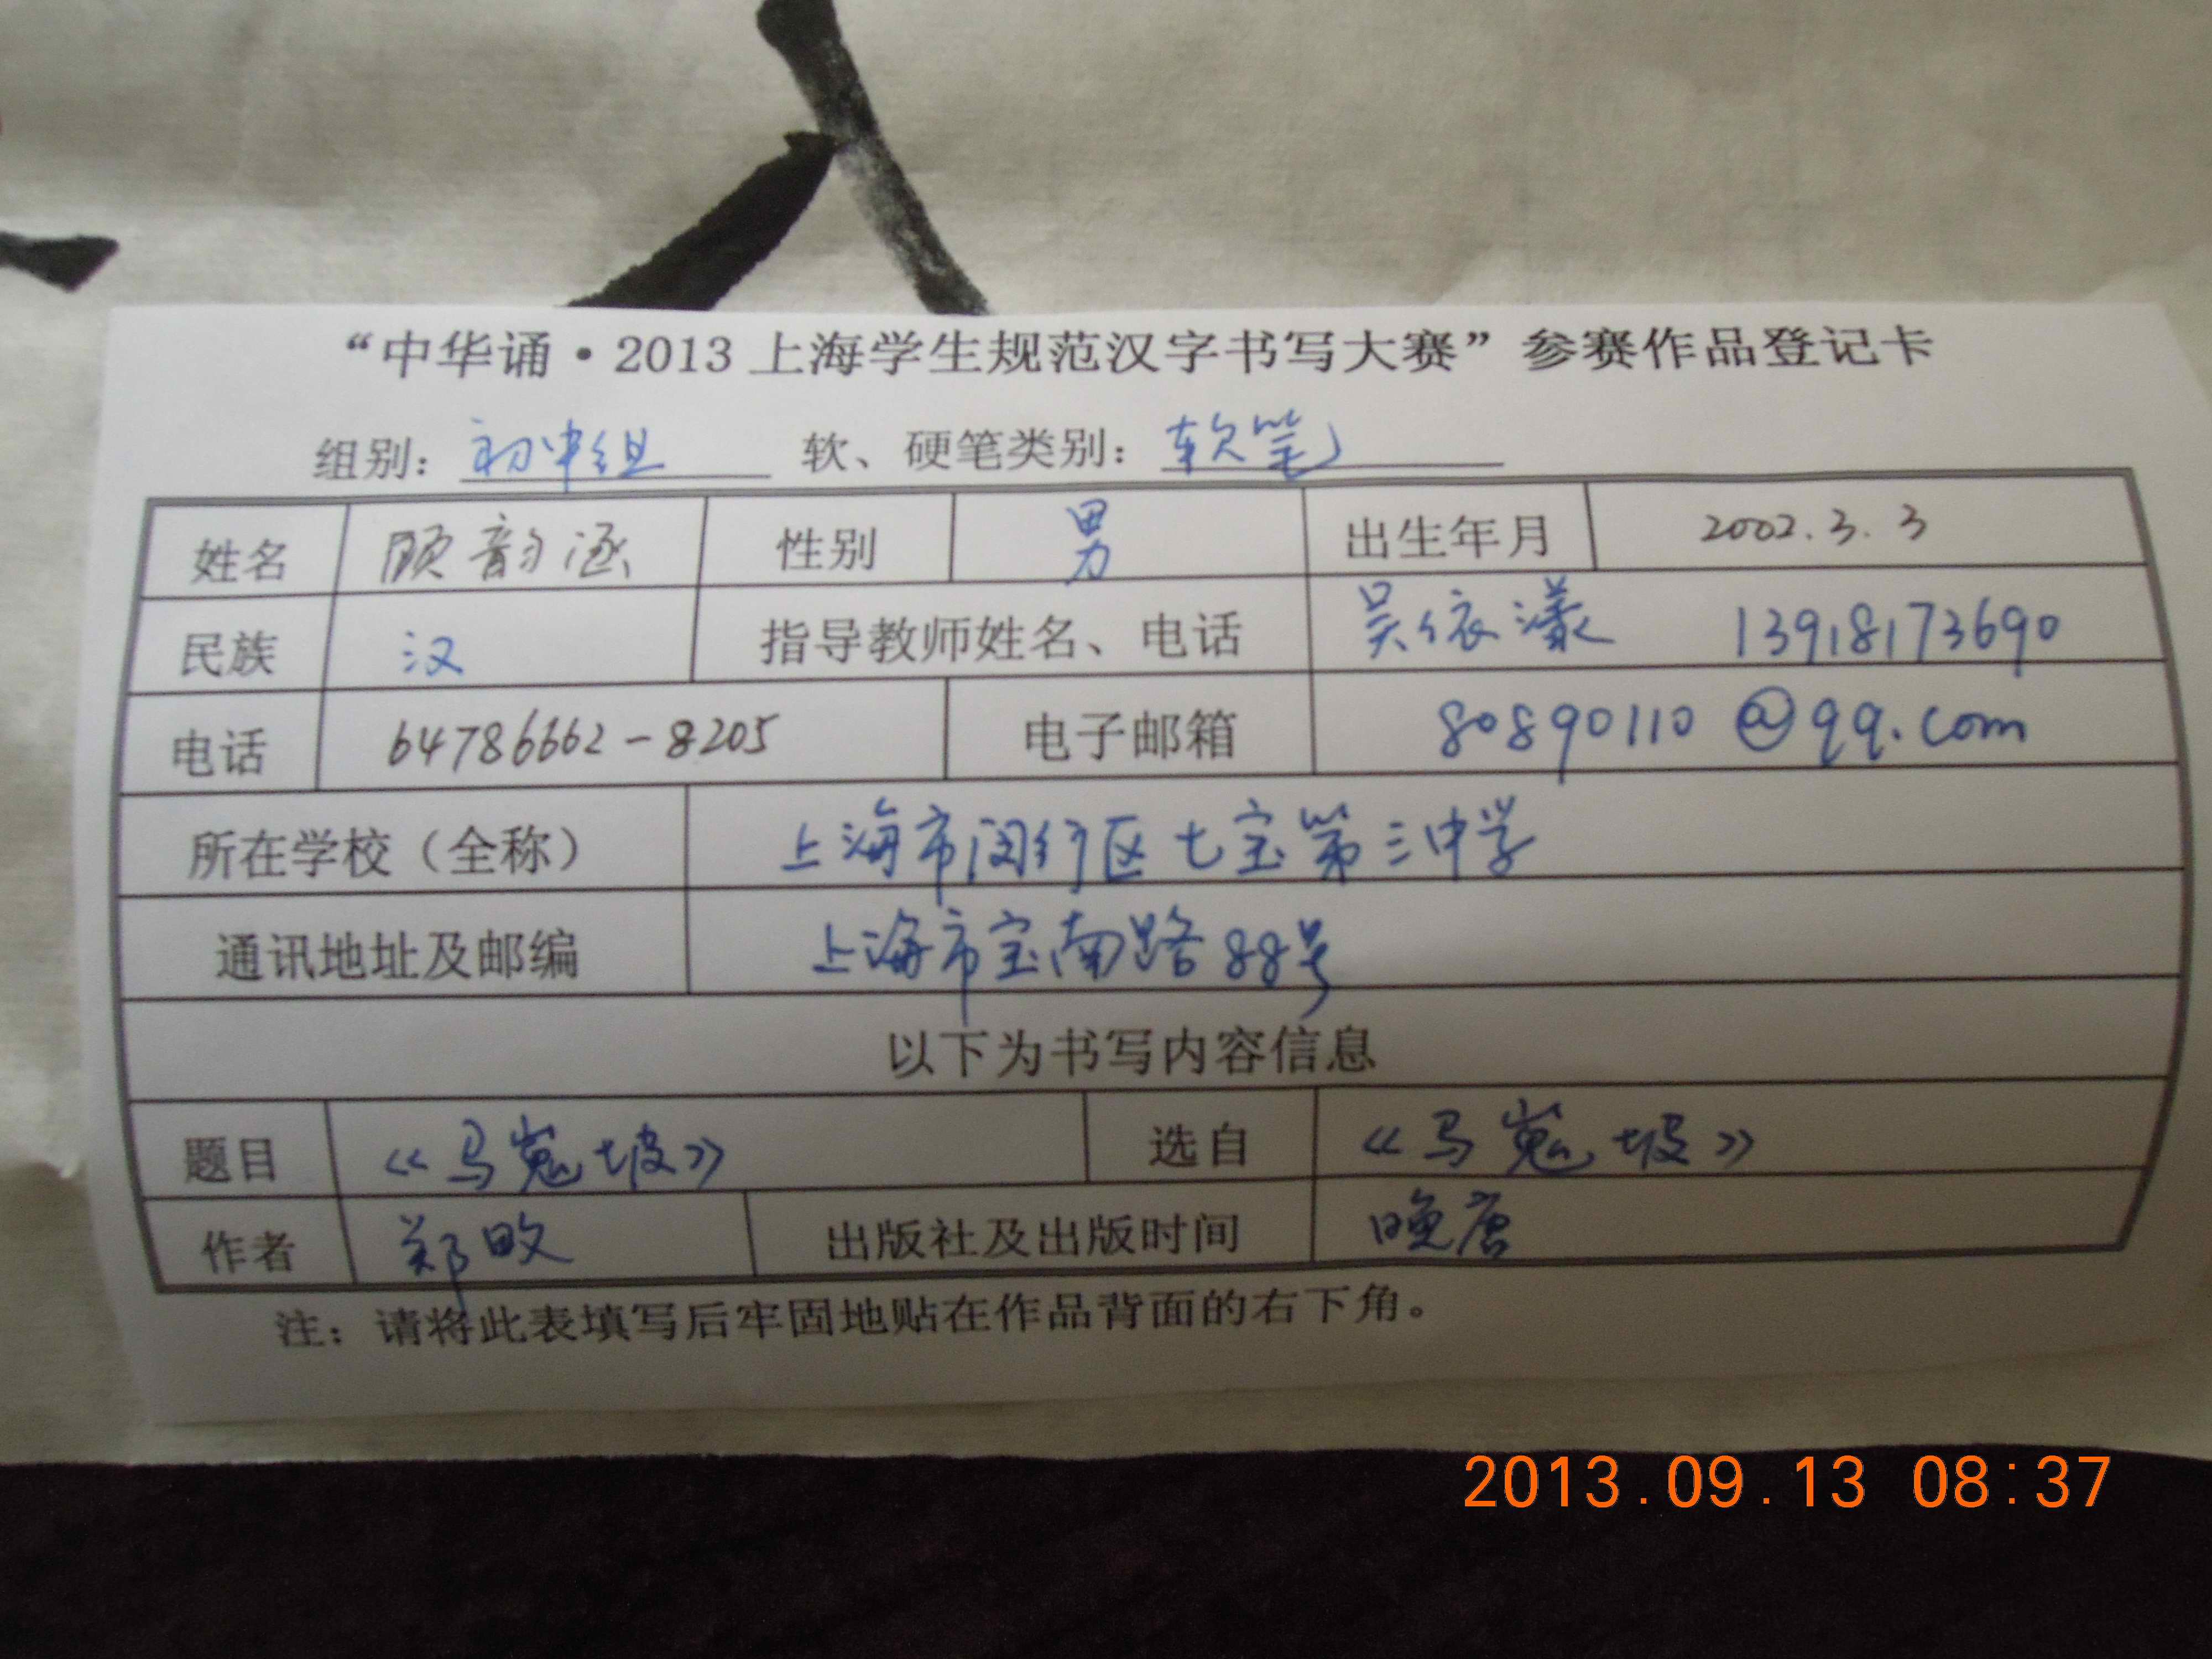 “中华诵·2013上海学生规范汉字书写大赛”参赛作品登记卡
组别：初中组 软、硬笔类别：软笔
姓名 顾韵涵 性别 男 出生年月 2002.3.3
民族 汉 指导教师姓名、电话 吴依漾 13918173690
电话 64786662-8205 电子邮箱 80890110@qq.com
所在学校（全称） 上海市闵行区七宝第三中学
通讯地址及邮编 上海市宝南路88号
以下为书写内容信息
题目 《马嵬坡》 选自 《马嵬坡》
作者 郑畋 出版社及出版时间 晚唐
注：请将此表填写后牢固地贴在作品背面的右下角。
2013.09.13 08:37